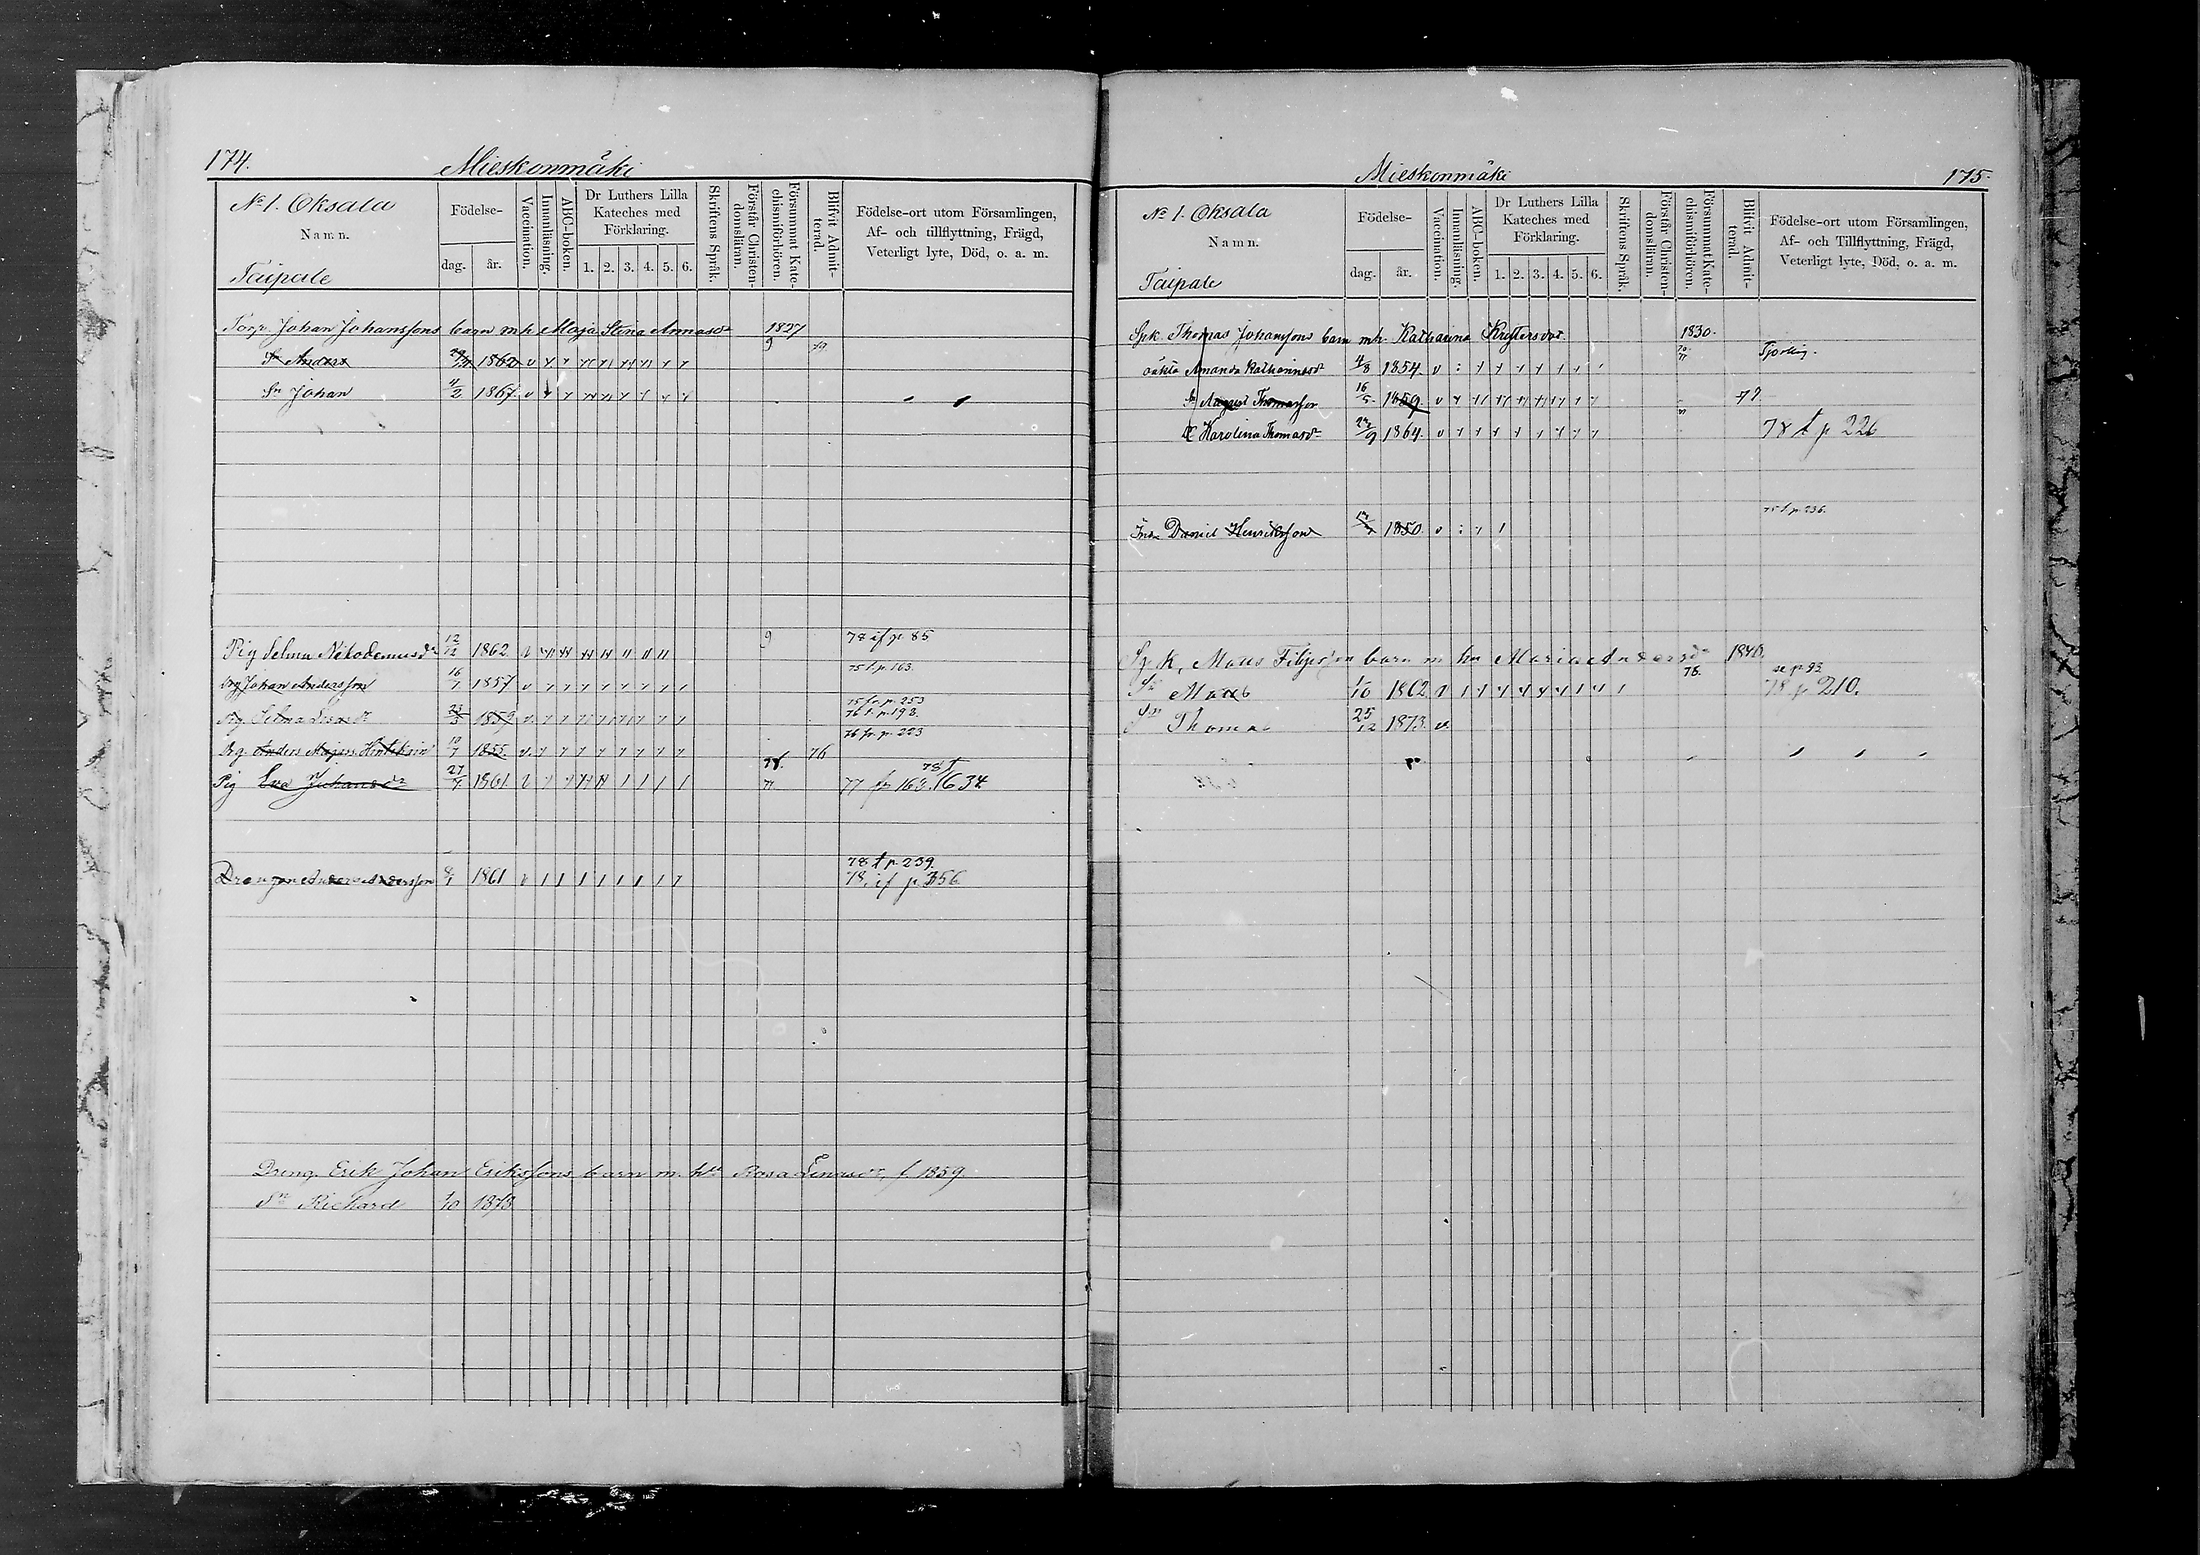 174.
Mieskonmäki
No 1. Oksala
Namn.
Taipale
Födelse-
dag.
år.
Vaccination.
Innanläsning.
ABC-boken.
Dr Luthers Lilla
Kateches med
Förklaring.
1. 2. 3. 4. 5. 6.
Skriftens Språk.
Förstår Christen-
domsläran.
Försummat Kate-
chismiförhören.
Blifvit Admit-
terad.
Födelse-ort utom Församlingen,
Af- och tillflyttning, Frägd,
Veterligt lyte, Död, o. a. m.
Torp. Johan Johanssons barn m h Maja Stina Annasdr 1827
Sn Anders 1862 v
Sn Johan 4/2 1867 v
Pig Selma Nikodemusdr 12/12 1862 9 78 if p. 85
Drg Johan Andersson 16/7 1857 v 75 t. p. 163.
75 fr. p. 253
Pig. Selma 23/5 1859 v 76 t. p. 193.
76 fr. p. 223
Drg. Anders 10/7 1855 v 76
Pig Eva Johansdr 27/7 1861 77 fp 163. 78 t 634
78 t p. 239.
Drängen Anders Andersson 8/1 1861 v 78, if p 356
Dräng Erik Johan Erikssons barn m. hu Rosa Linasdr, f. 1859
Sn Richard 1/10 1878
Mieskonmäki
175.
No 1. Oksala
Namn.
Taipale
Födelse-
dag.
år.
Vaccination.
Innanläsning.
ABC-boken.
Dr Luthers Lilla
Kateches med
Förklaring.
1. 2. 3. 4. 5. 6.
Skriftens Språk.
Förstår Christen-
domsläran.
Försummat Kate-
chismiförhören.
Blifvit Admit-
terad.
Födelse-ort utom Församlingen,
Af- och Tillflyttning, Frägd,
Veterligt lyte, Död, o. a. m.
Spk. Thomas Johanssons barn m h. Katharina 1830.
oäkta Amanda Katharinasdr 4/8 1854. v
Sn August Thomasson 16/5 1859. v 77
Dr Karolina Thomasdr 1864. v 78 t p 226
75 t. p. 236.
Inh. Daniel Henriksson 1850 v
Spk, Matts Filipsson barn m hu Maria Andersdr 1840.
76. se p. 93
Sn Matts 1/10 1862 78 p 210.
Sn Thomas 25/12 1873. v.